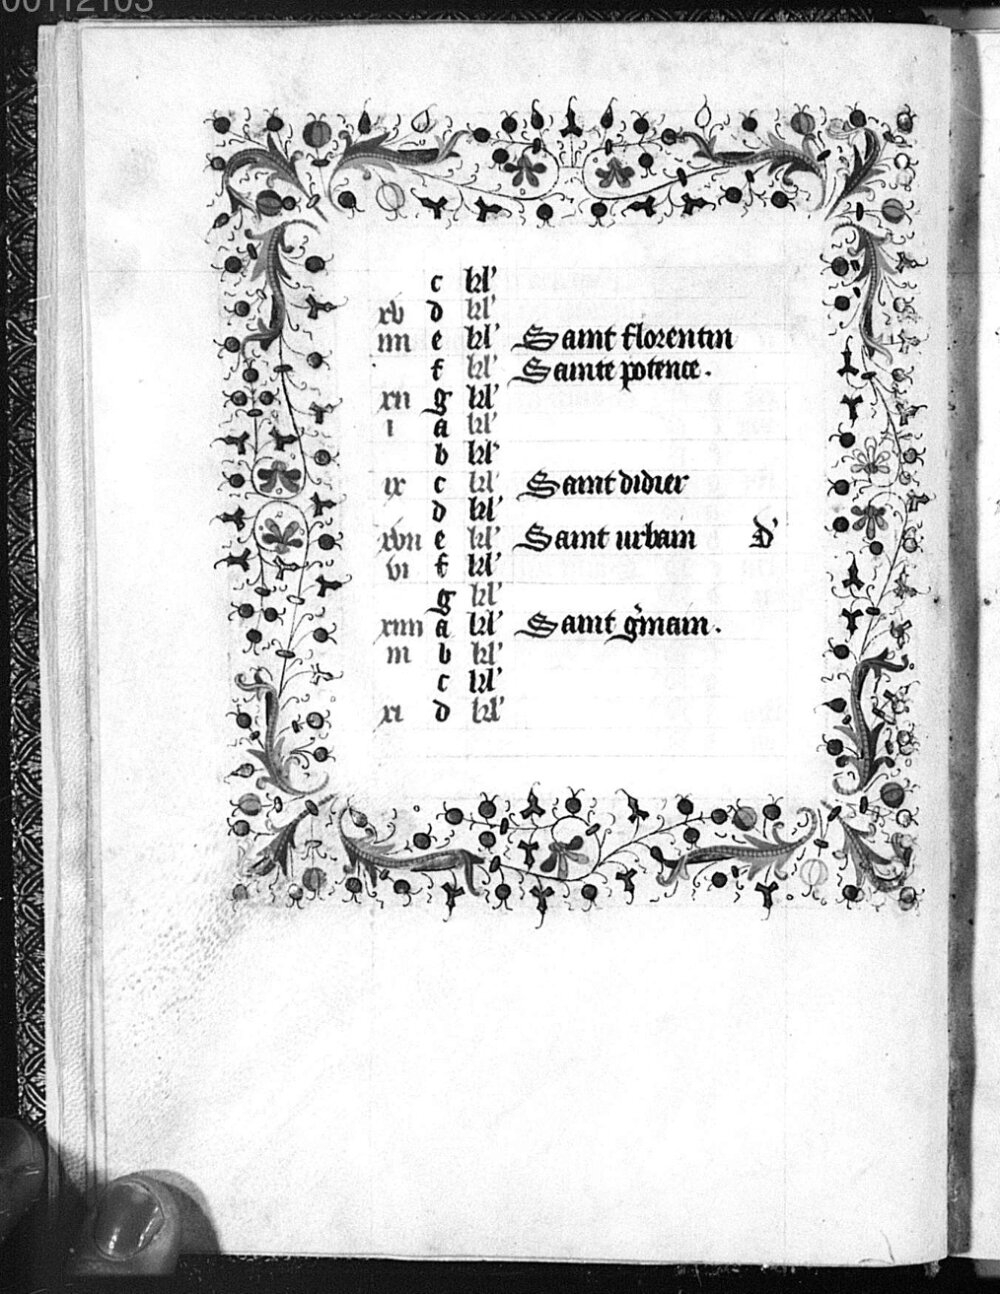 00112103
c kl'
xv d kl'
iiii e kl' Saint florentin
f kl' Sainte potence.
xii g kl'
i a kl'
b kl'
ix c kl' Saint didier
d kl'
xvii e kl' Saint urbain d'
vi f kl'
g kl'
xiiii a kl' Saint g'main.
iii b kl'
c kl'
xi d kl'